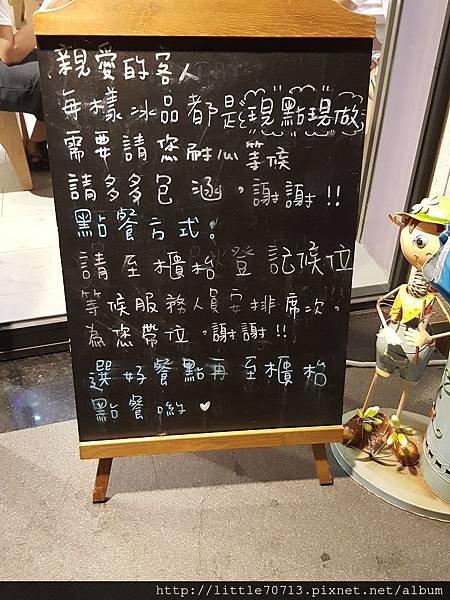 親愛的客人
每樣冰品都是現點現做
需要請您耐心等候
請多多包涵，謝謝!!
點餐方式：
請至櫃枱登記候位
等候服務人員安排席次，
為您帶位，謝謝!!
選好餐點再至櫃枱
點餐喲♥
http://little70713.pixnet.net/album